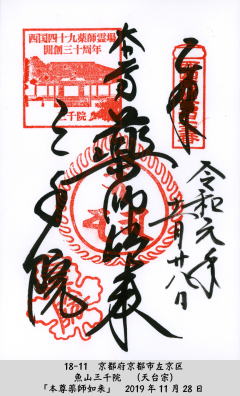 西国四十九薬師霊場
開創三十周年
三千院
本尊薬師如来
三千院
令和元年
十一月廿八日
18-11 京都府京都市左京区
魚山三千院 (天台宗)
「本尊薬師如来」 2019年11月28日